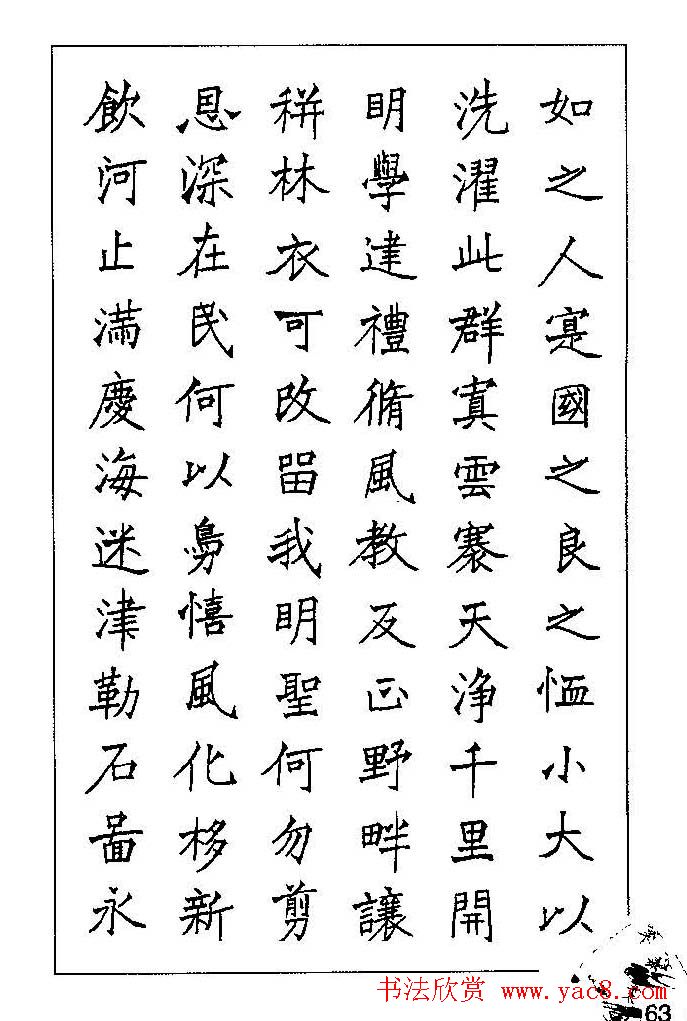 如之人寔國之良之恤小大以
洗濯此群冥雲褰天淨千里開
明學建禮脩風教反正野畔讓
耕林衣可改留我明聖何勿剪
恩深在民何以憘風化移新
飲河止滿慶海迷津勒石啚永
书法欣赏 www.yac8.com
63